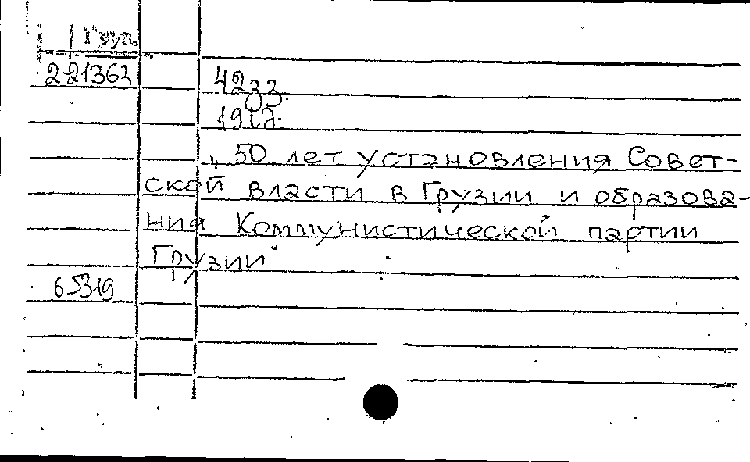 Груз.
221363
„50 лет установления Совет-
ской власти в Грузии и образова-
ния Коммунистической партии
Грузии"
65319